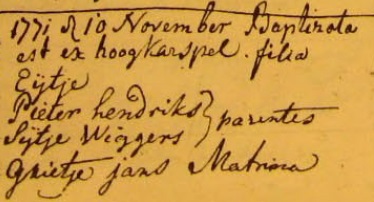 1771 d 10 November Baptizata
est ex hoogkarspel. filia
Eijtje
Pieter hendriks } parentes
Sijtje Wiggers
grietje jans Matrina